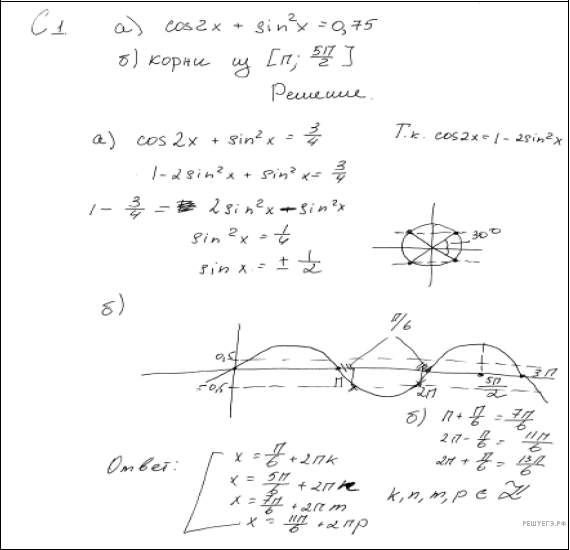 С1 а) cos2x + sin²x = 0,75
б) корни из [π; 5π/2]
Решение.
а) cos2x + sin²x = 3/4
Т.к. cos2x = 1 - 2sin²x
1 - 2sin²x + sin²x = 3/4
1 - 3/4 = 2sin²x - sin²x
sin²x = 1/4
sin x = ± 1/2
30°
б)
π/6
0,5
-0,5
π
2π
5π/2
3π
б) π + π/6 = 7π/6
2π - π/6 = 11π/6
2π + π/6 = 13π/6
Ответ:
x = π/6 + 2πk
x = 5π/6 + 2πn
x = 7π/6 + 2πm
x = 11π/6 + 2πp
k, n, m, p ∈ Z
РЕШУЕГЭ.РФ